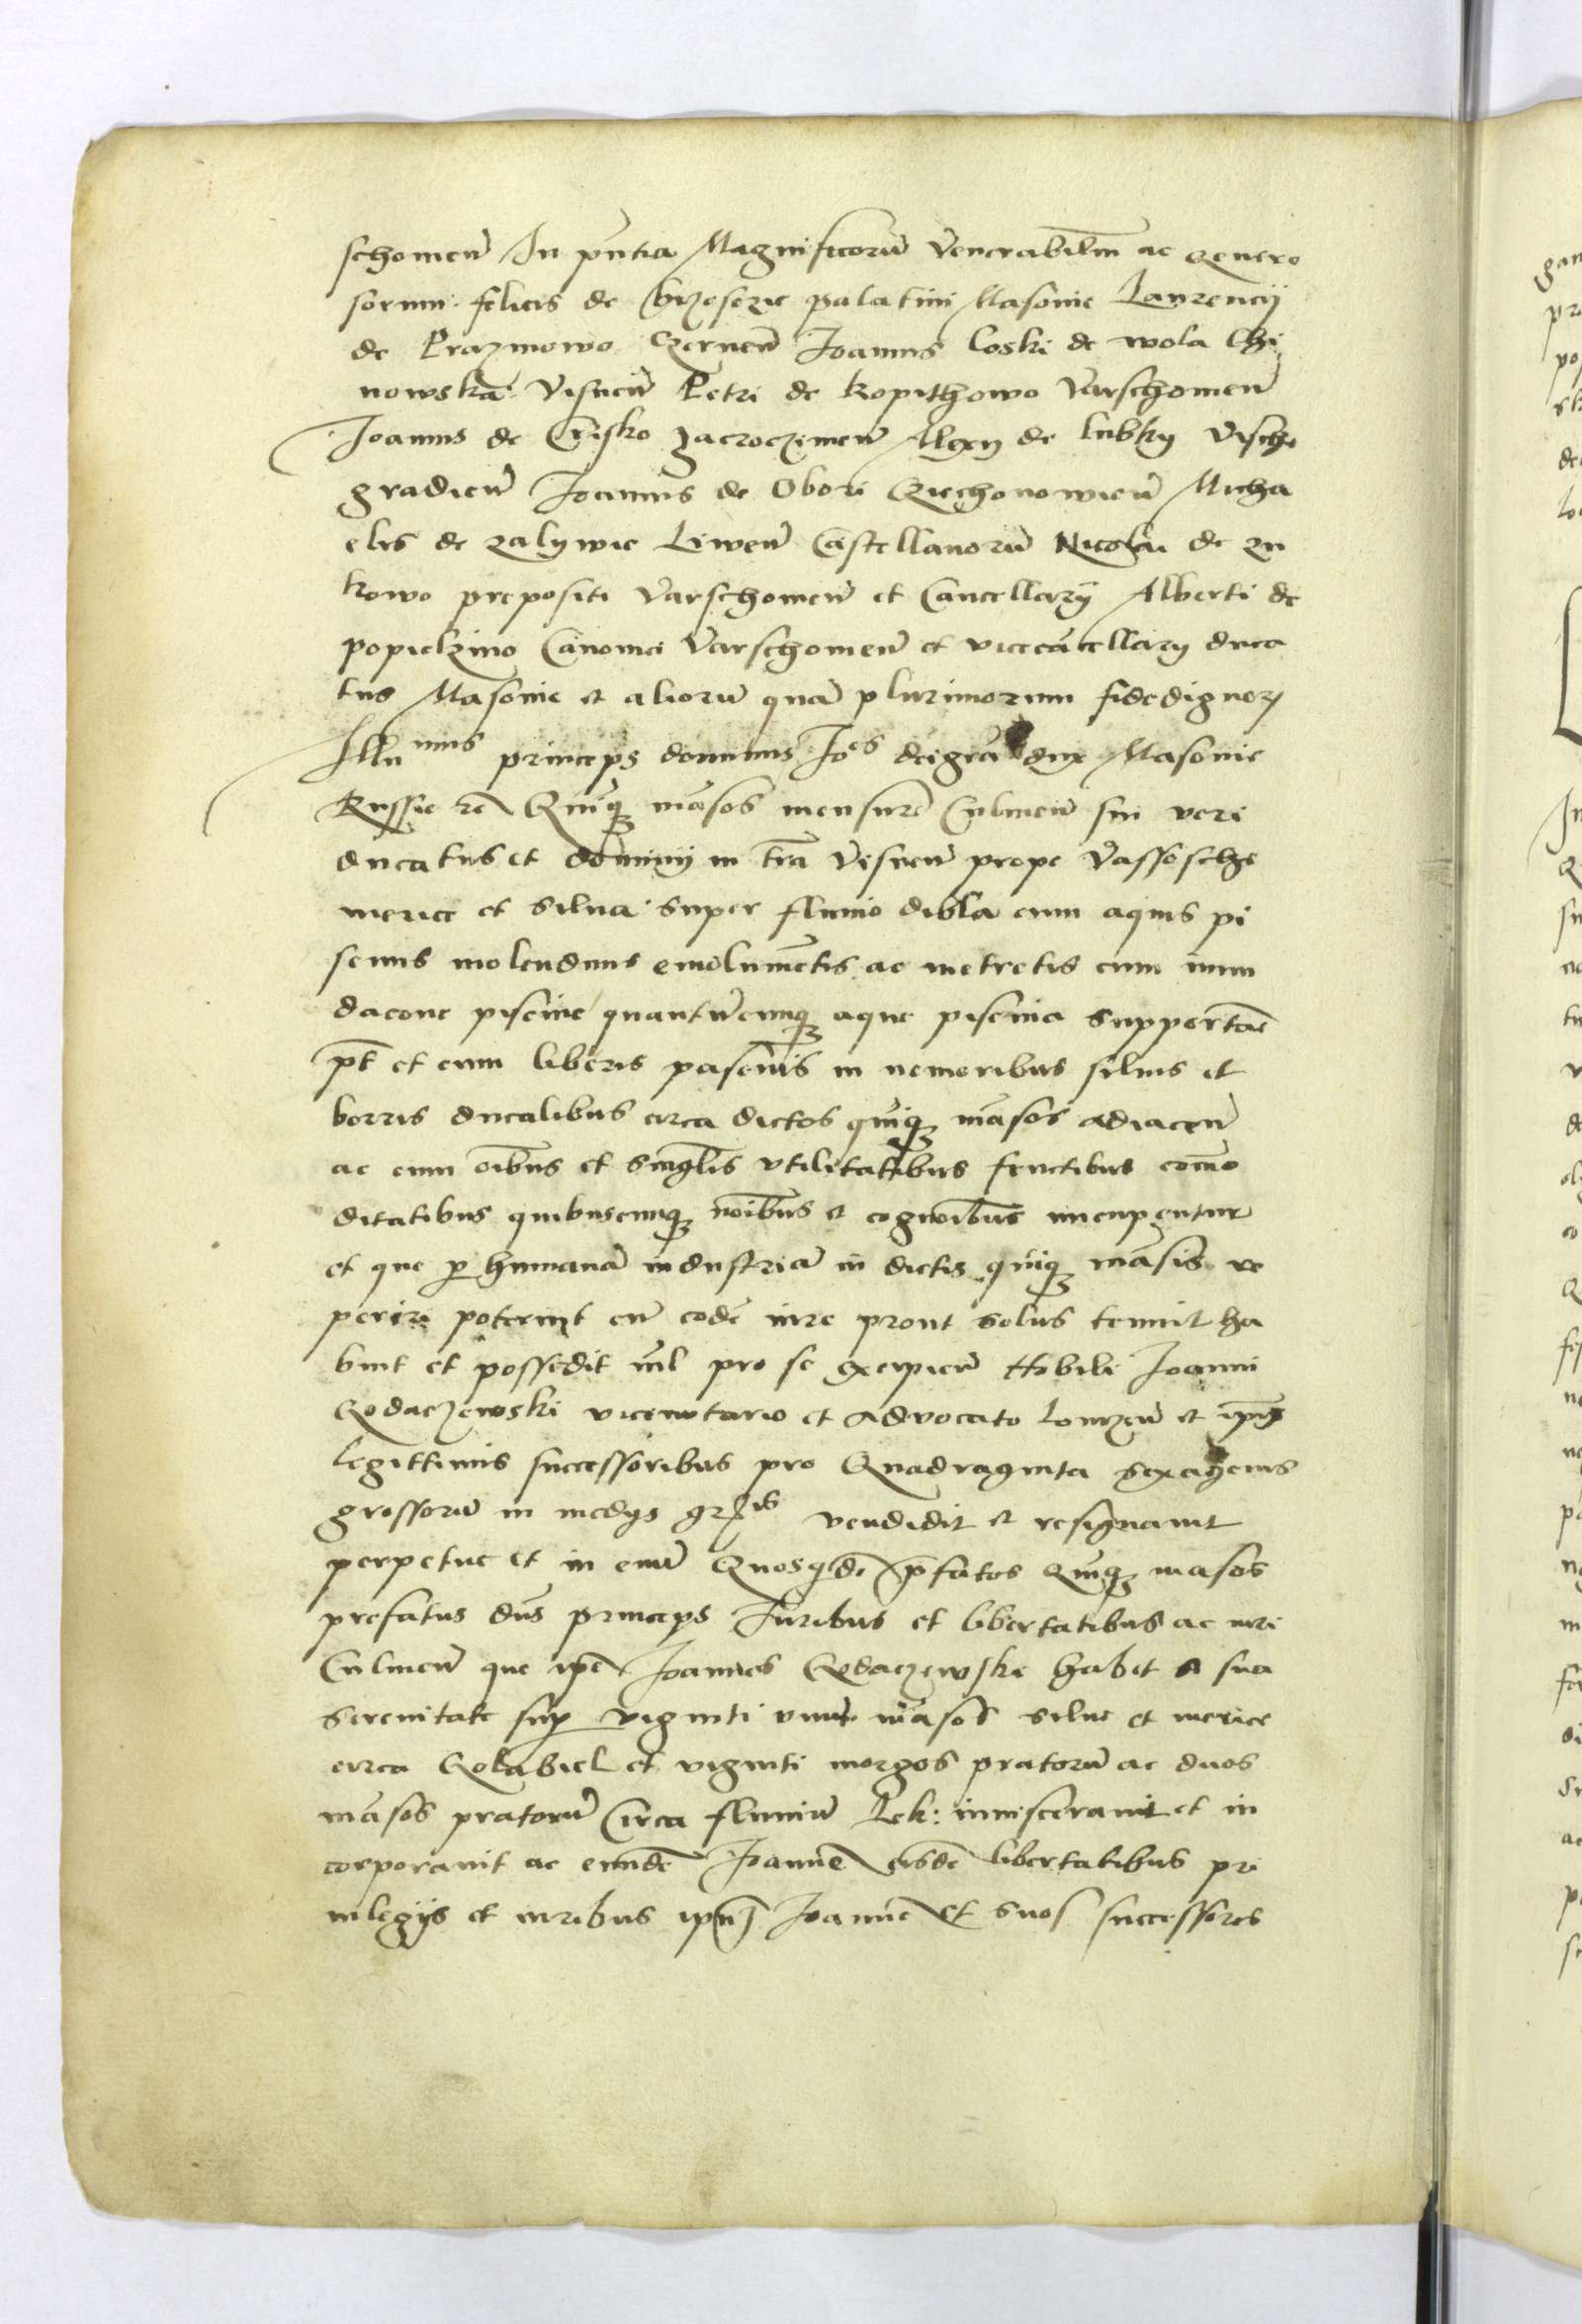 schomen̄ In pn̄tia Magnificorū Venerabiliū ac genero
sorum felicis de brzesczie palatini Masouie Laurencij
de Prazmowo Czernen̄ Joannis Loski de wola Chi
nowska Visnen̄ Petri de kopithowo Varschomen̄
Joannis de Crisko zacroczimen̄ Alexij de lubky Vische
gradien̄ Joannis de Obori Cziechonowien̄ Micha
elis de zalywie Liwen̄ Castellanorū Nicolai de zu
kowo prepositi Varschomen̄ et Cancellarij Alberti de
popielzino Canonici Varschomen̄ et vicecācellarij duca
tus Masouie et aliorū quā plurimorum fidedignorꝫ
Illumus princeps dominus Joēs deigrā dux Masouie
Russie rc̄ Quīqꝫ māsos mensure Culmen̄ sui veri
ducatus et dominij in trā Visnen̄ prope Vassosche
merice et silua super fluuio dibla cum aquis pi
scinis molendinis emolumētis ac metretis cum inun
dacone piscine quantūcunqꝫ aque piscina supportāe
pt̄ et cum liberis pascuis in nemoribus siluis et
borris ducalibus circa dictos quīqꝫ māsos adiacen̄
ac cum oībus et singl̄is vtilitatibus fructibus com̄o
ditatibus quibuscunqꝫ noībus et cognoībus nuncupentur
et que ꝑ humanā industriā in dictis quīqꝫ māsis re
periri poterint cū eodē iure prout solus tenuit ha
buit et possedit nīl pro se excipien̄ Nobili Joanni
Godaczewski vicenotario et aduocato Lomzen̄ et ipīus
legittimis successoribus pro Quadraginta sexagenis
grossorū in medijs grossis vendidit et resignauit
perpetue et in euū Quosqdē p̄fatos Quīqꝫ māsos
prefatus dn̄s princeps Juribus et libertatibus ac iuri
Culmen̄ que ipē Joannes Godaczewski habet a sua
serenitate supꝑ viginti vnū māsos silue et merice
circa Kolabiel et viginti morgos pratorū ac duos
māsos pratorū Circa fluuiū Lek: inuiscerauit et in
corporauit ac eundē Joannē eisdē libertatibus pri
uilegijs et iuribus ipm̄ Joannē et suos successores